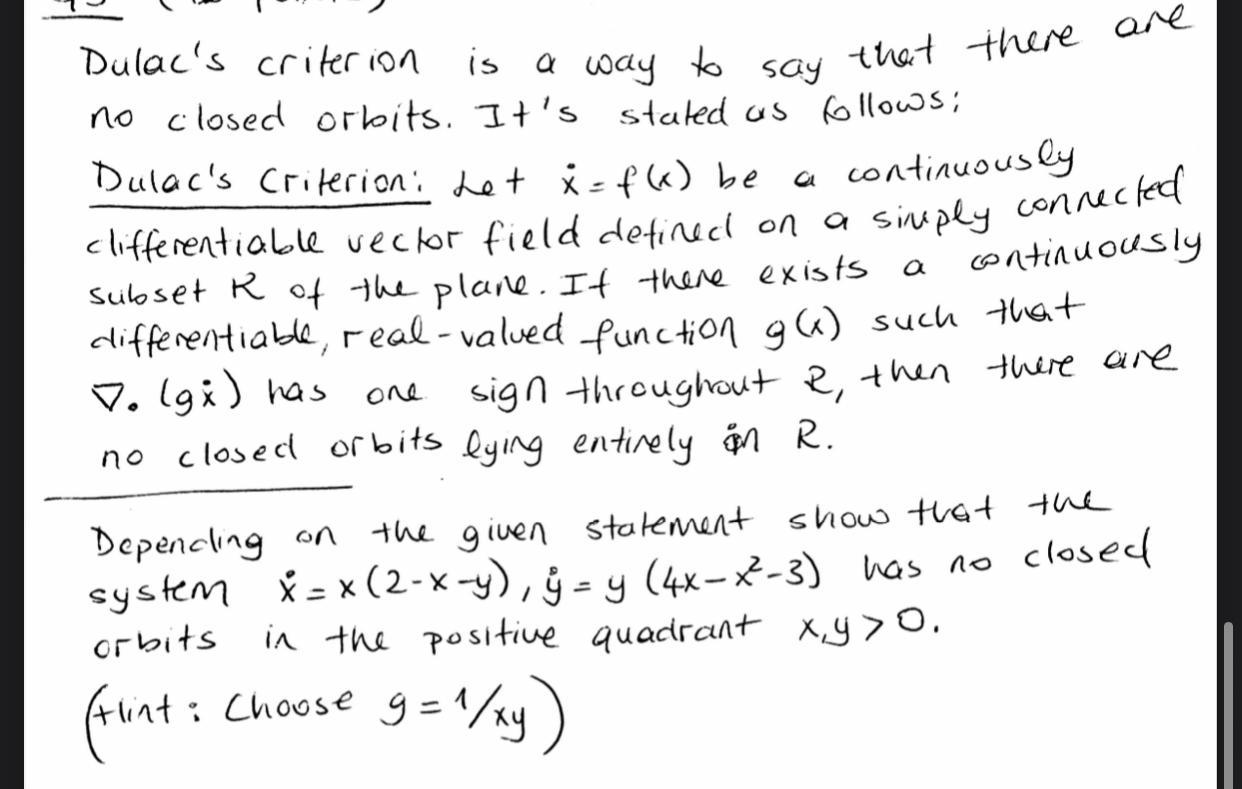 Dulac's criterion is a way to say that there are
no closed orbits. It's stated as follows:
Dulac's Criterion: Let ẋ = f(x) be a continuously
differentiable vector field defined on a simply connected
subset R of the plane. If there exists a continuously
differentiable, real-valued function g(x) such that
∇. (gẋ) has one sign throughout R, then there are
no closed orbits lying entirely in R.
Depending on the given statement show that the
system ẋ = x(2-x-y), ẏ = y (4x-x²-3) has no closed
orbits in the positive quadrant x,y > 0.
(Hint: Choose g = 1/xy)